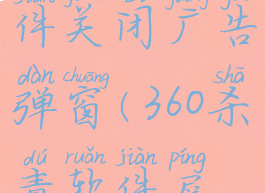 件关闭广告
dàn chuāng shā
弹窗(360杀
dú ruǎn jiàn píng
毒软件屏